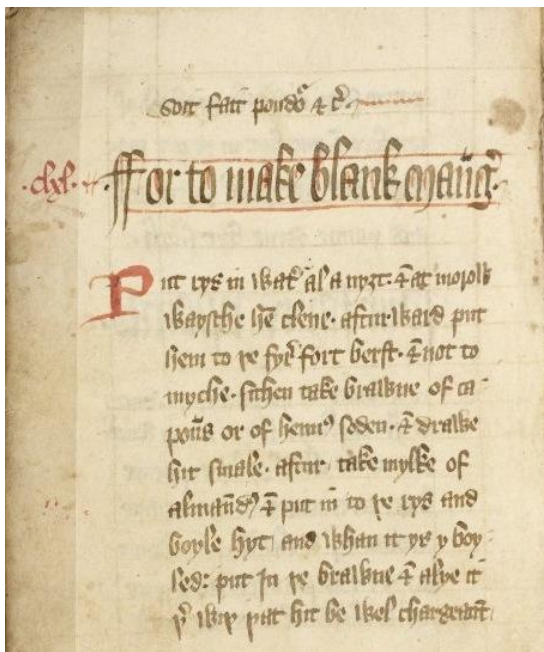 soit fait poudr & c̃
.cxl. ffor to make blank maūg̃
Put rys in wat̃ al a nyzt. & at morow
waysche hē clene. aftur ward put
hem to ye fyr̃ fort berst. & not to
myche. sithen take brawne of ca
poūs or of hennꝰ soden. & drawe
hit smale. aftur take mylke of
almaūdꝰ & put in to ye rys and
boyle hyt and whan it ys y boy
led: put In ye brawne & alye it
yr̃ wiþ yat hit be wel chargeaūt.